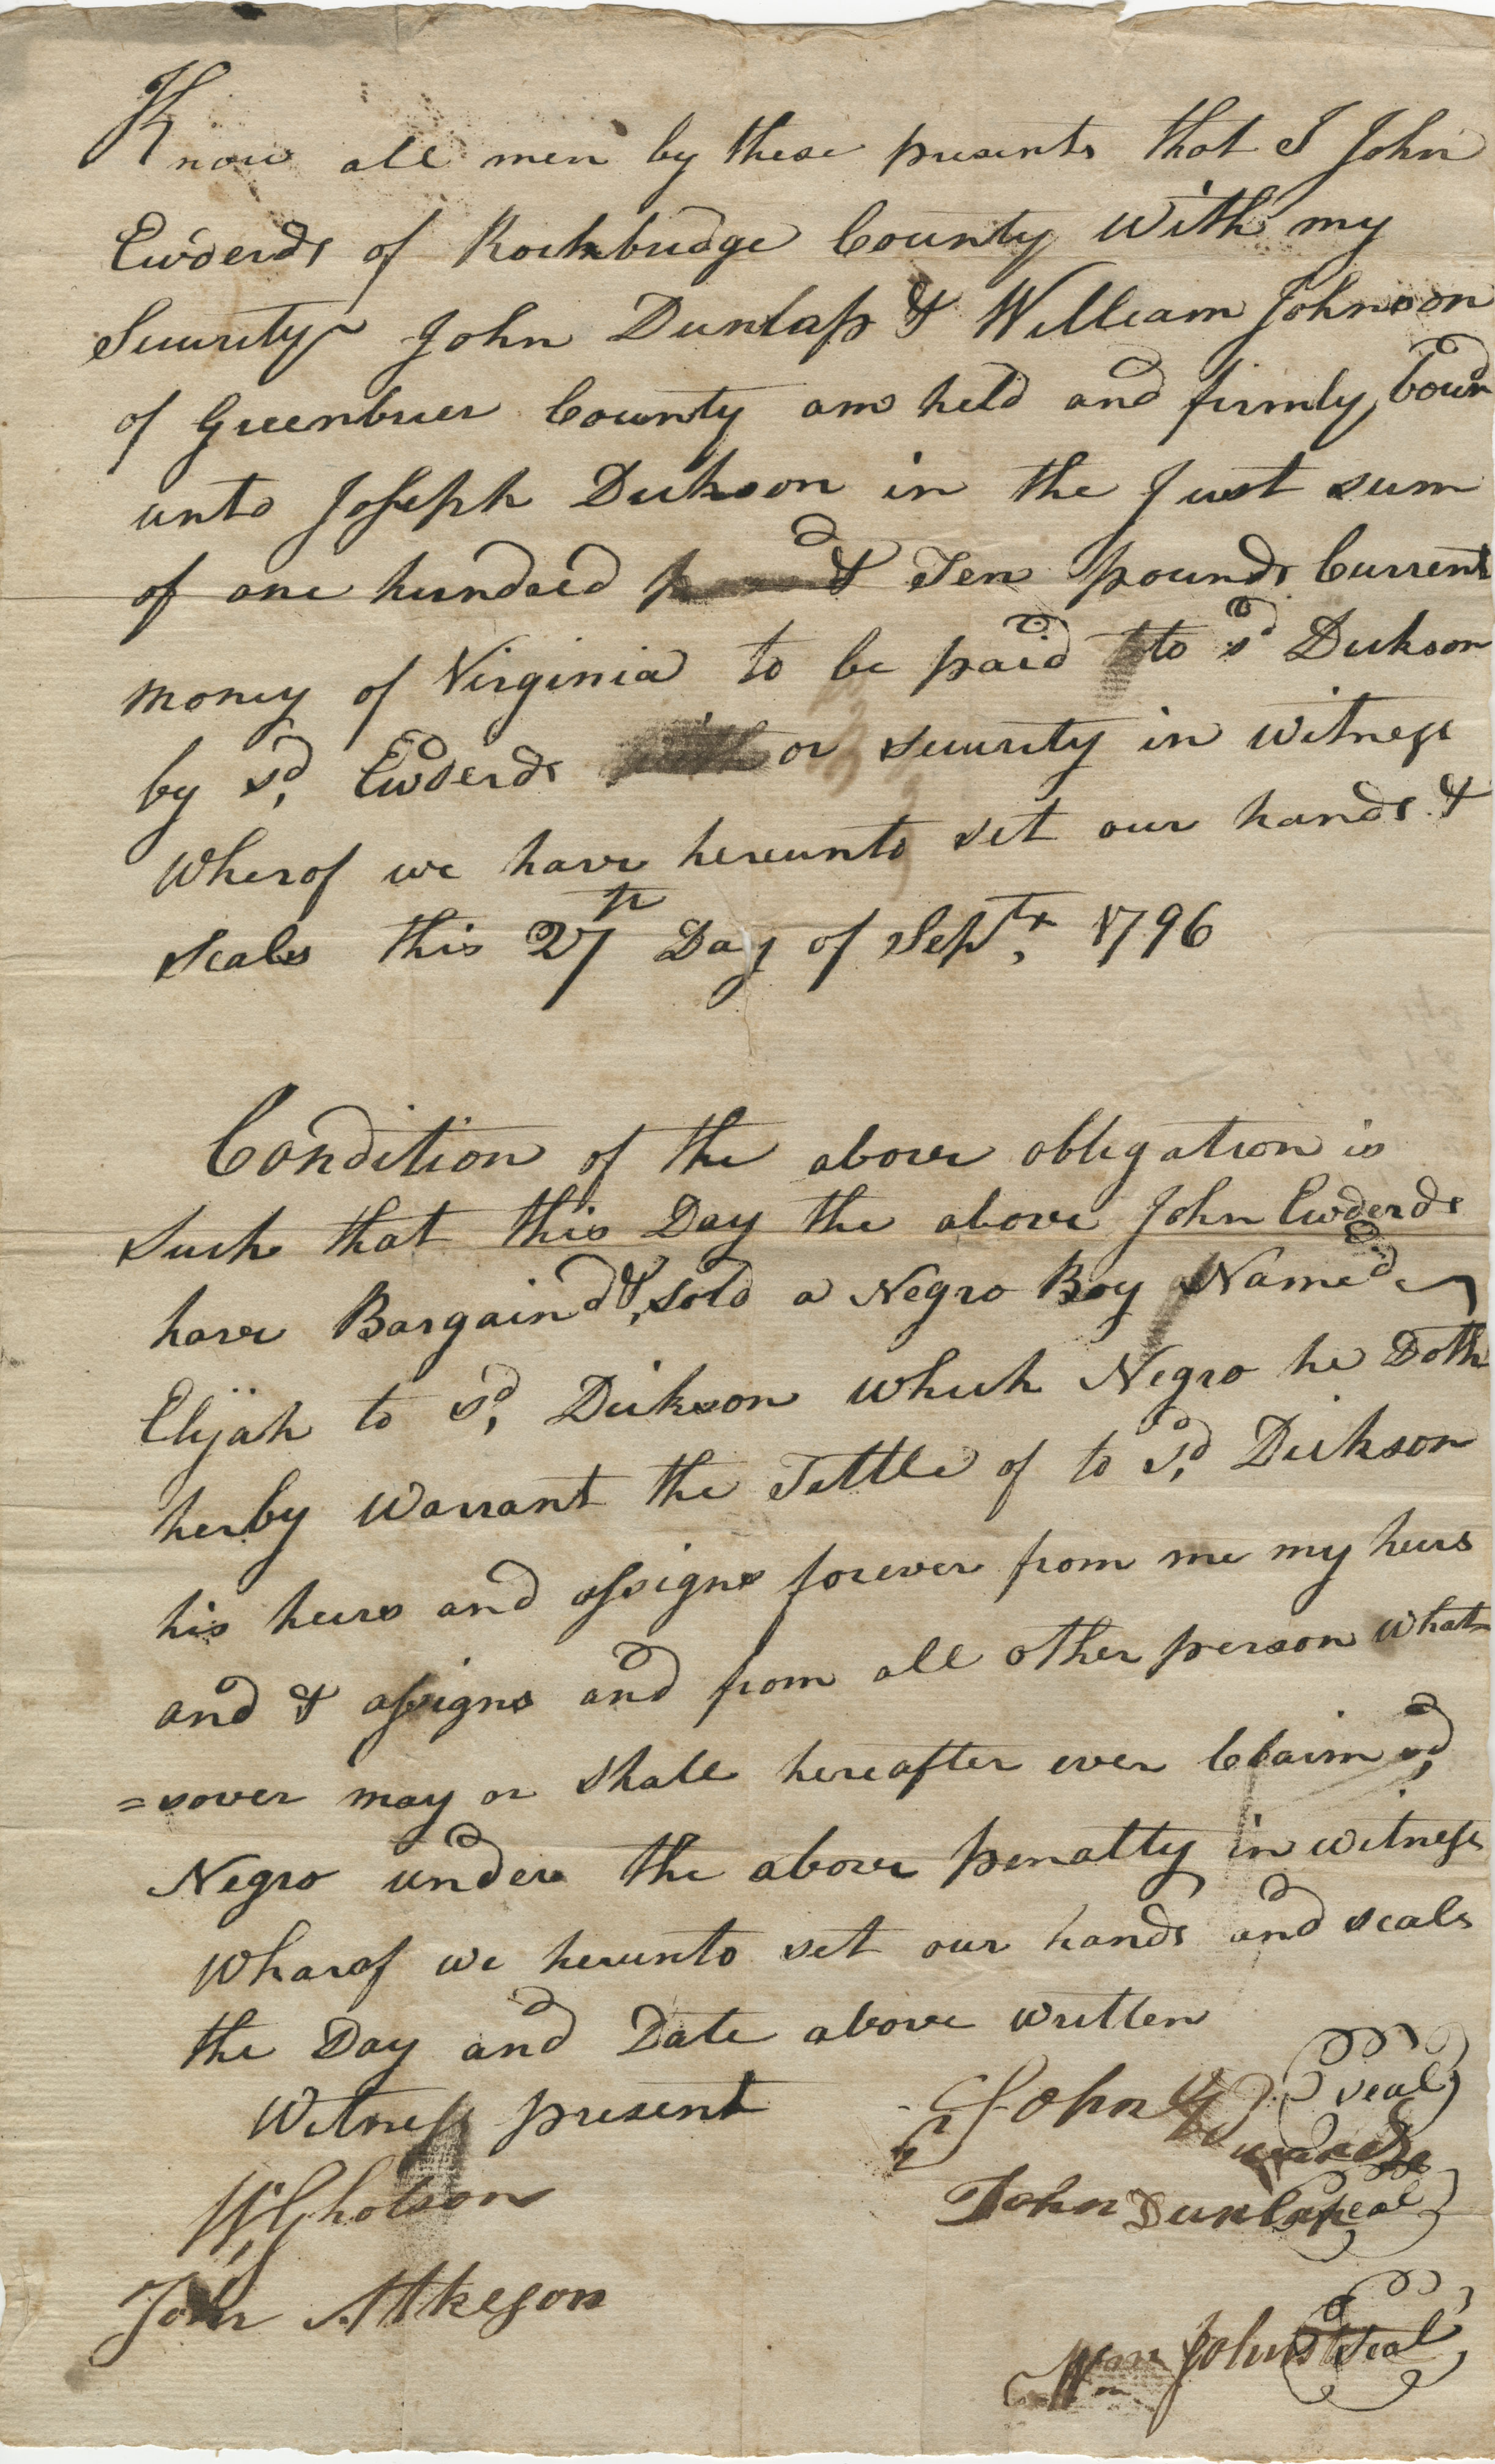 Know all men by these presents that I John
Ewderds of Rockbridge County With my
Security John Dunlap & William Johnson
of Greenbrier County am held and firmly bound
unto Joseph Dickson in the Just sum
of one hundred & Ten pounds Current
money of Virginia to be paid to sd Dickson
by sd, Ewderds or security in witness
Wherof we have hereunto set our hands &
seals this 27th Day of Septr, 1796
Condition of the above obligation is
Such that this Day the above John Ewderds
have Bargaind &, sold a Negro Boy Named
Elijah to sd, Dickson which Negro he Doth
herby Warrant the Tittle of to sd, Dickson
his heirs and assigns forever from me my heirs
and & assigns and from all other person what=
=sover may or shall hereafter ever Claim sd,
Negro under the above penalty in witness
Wharof we herunto set our hands and seals
the Day and Date above written
Witness present
John seal
W, Gholson
John Dunlap seal
John Atkeson
Wm Johns seal